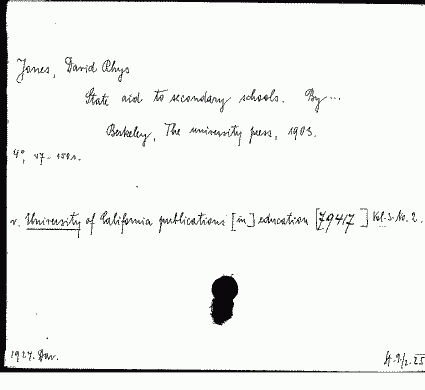 Jones, David Rhys
State aid to secondary schools. By...
Berkeley, The university press, 1903.
4°, 47-150 s.
v. University of California publications [in] education [79417] Vol. 3. No. 2.
1927. Dar.